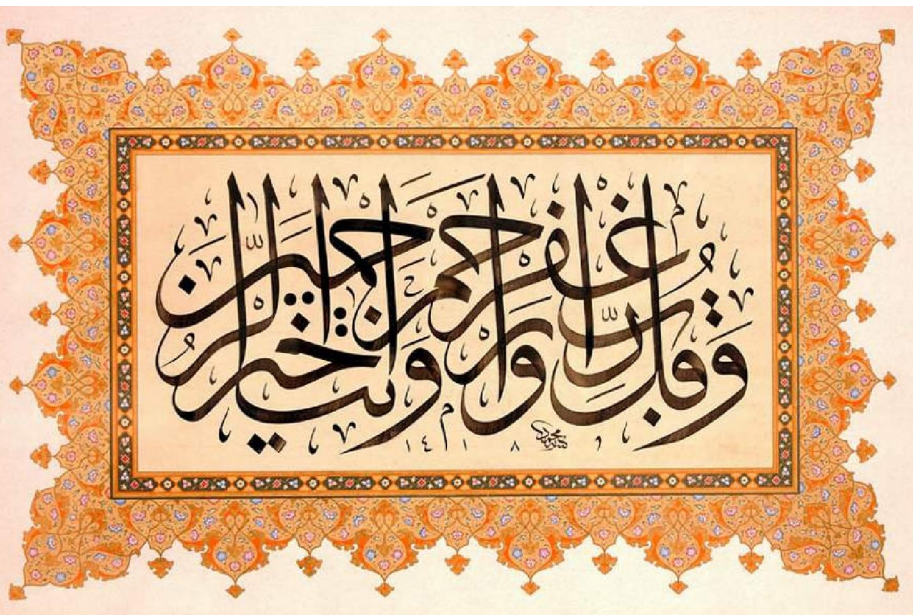 وقل رب اغفر وارحم وانت خير الراحمين
١٤١٨